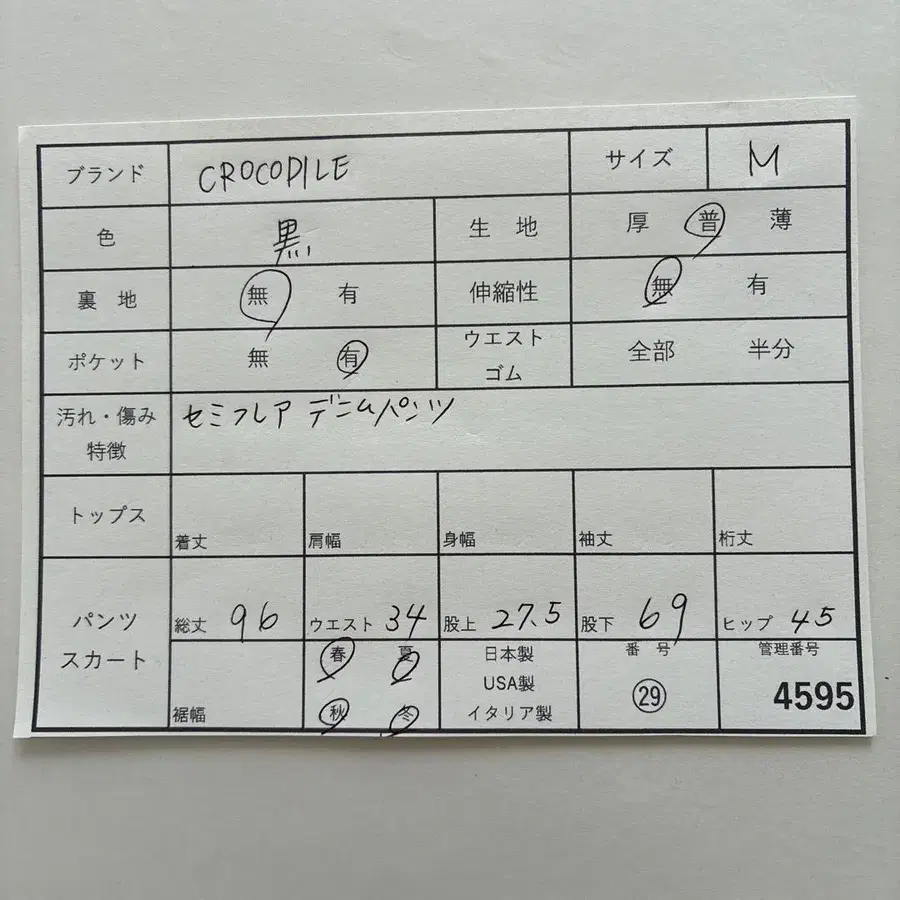 ブランド CROCODILE サイズ M
色 黒 生地 厚 普 薄
裏地 無 有 伸縮性 無 有
ポケット 無 有 ウエスト
ゴム 全部 半分
汚れ・傷み
特徴 セミフレア デニムパンツ
トップス 着丈 肩幅 身幅 袖丈 裄丈
パンツ
スカート
総丈 96 ウエスト 34 股上 27.5 股下 69 ヒップ 45
裾幅
春 夏
秋 冬
日本製
USA製
イタリア製
番号
㉙
管理番号
4595